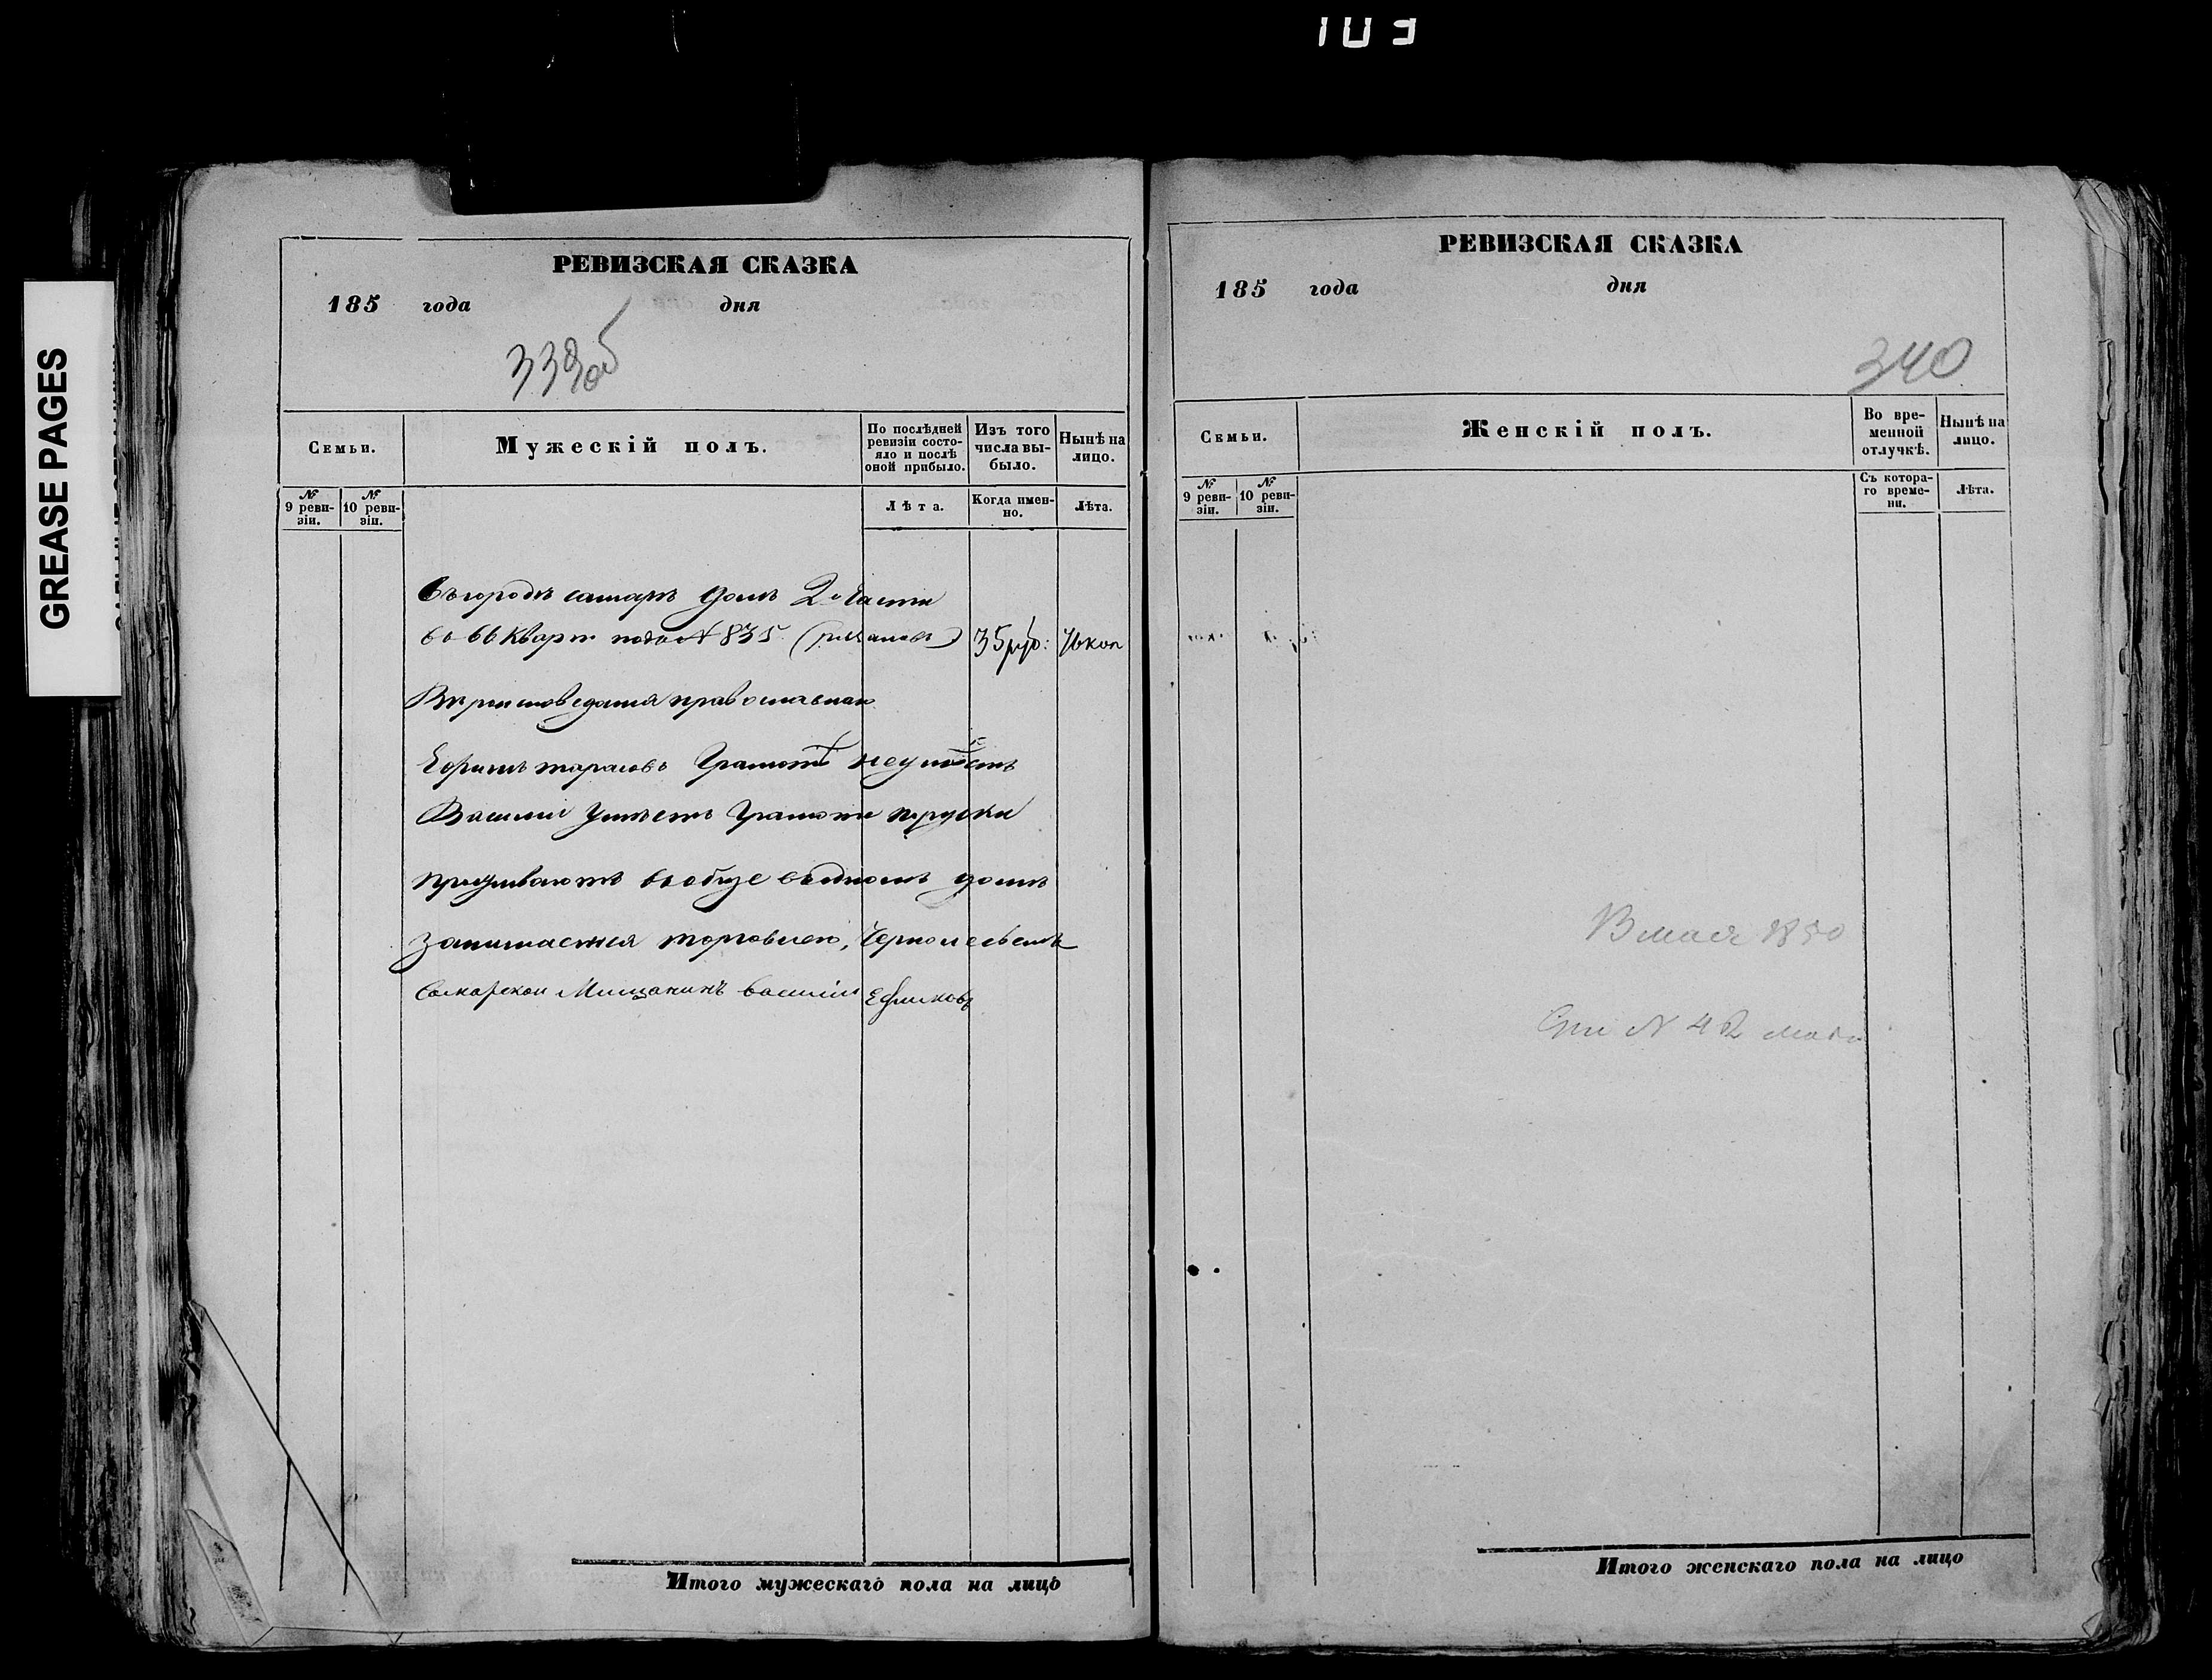 103
GREASE PAGES
РЕВИЗСКАЯ СКАЗКА
185 года дня
339об
Семьи.
Мужескій полъ.
По послѣдней ревизіи состояло и послѣ оной прибыло.
Изъ того числа выбыло.
Нынѣ на лицо.
№ 9 ревизіи.
№ 10 ревизіи.
Лѣта.
Когда именно.
Лѣта.
въ городѣ самарѣ домъ 2й части
въ 66 Кварт подъ № 835 35 руб: 76 коп
Вѣроисповеданія православнаго
Ефимъ тарасовъ Грамотѣ неумѣетъ
Василий Умѣетъ Грамоте поруски
проживаютъ вообще водномъ домѣ
Занимаетея торговлею,
Самарской Мищанинъ василий Ефимовъ
Итого мужескаго пола на лицо
РЕВИЗСКАЯ СКАЗКА
185 года дня
340
Семьи.
Женскій полъ.
Во временной отлучкѣ.
Нынѣ на лицо.
№ 9 ревизіи.
№ 10 ревизіи.
Съ котораго времени.
Лѣта.
В мая 1850
№ 42
Итого женскаго пола на лицо